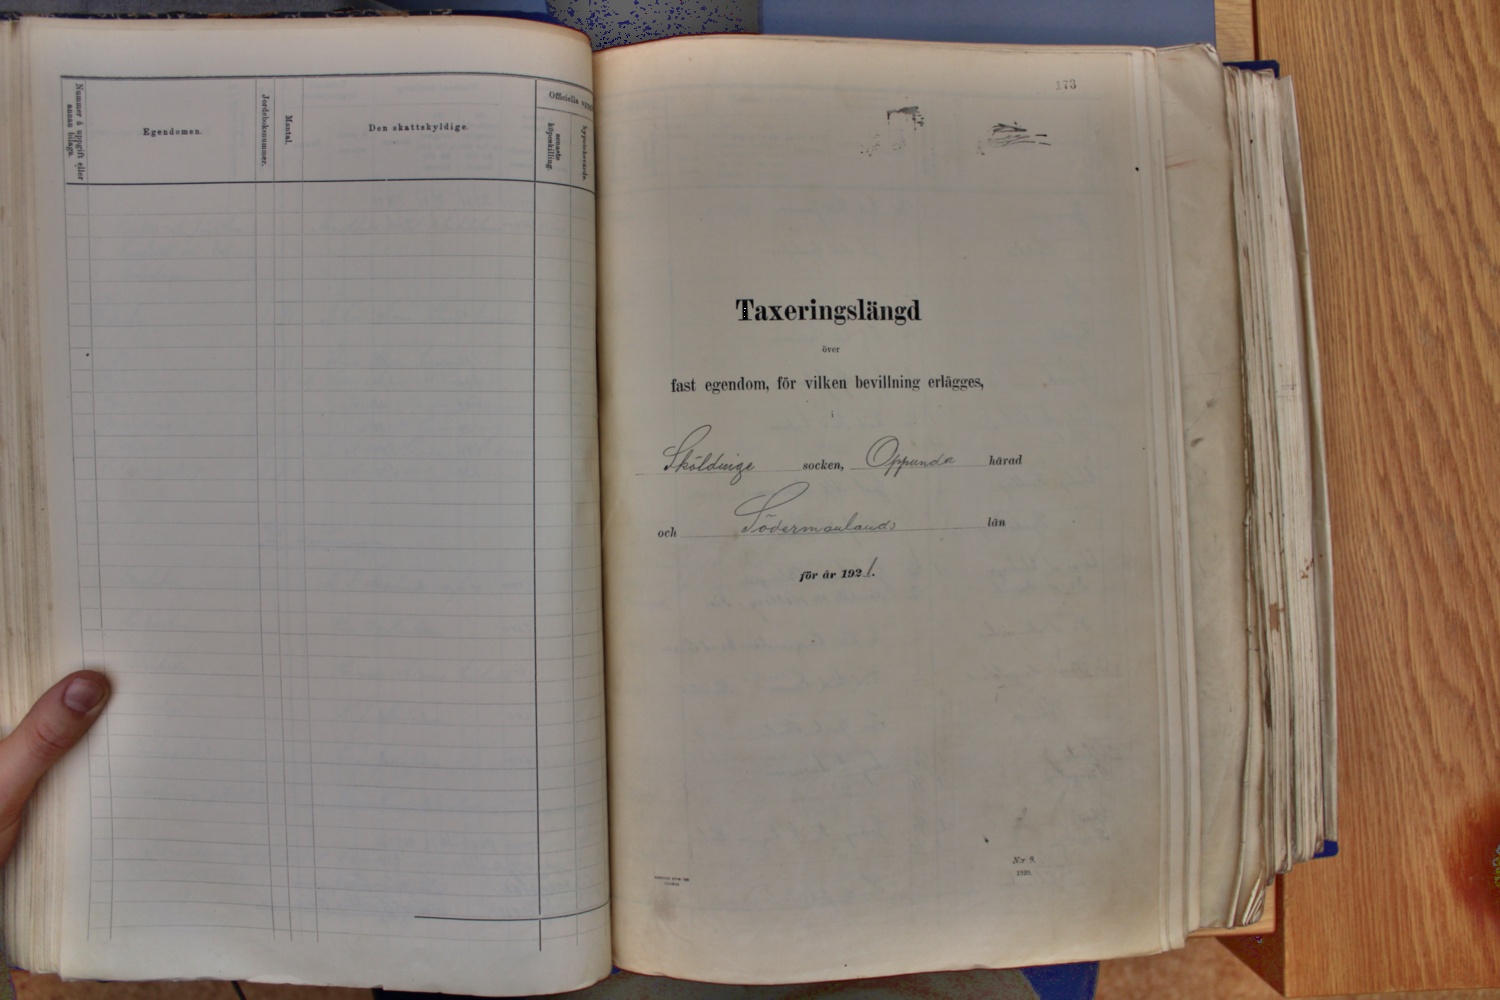 Nummer å uppgift eller
annan bilaga.
Egendomen.
Jordeboksnummer.
Mantal.
Den skattskyldige.
Officiella
senaste
köpeskilling.
hypoteksvärde.
173
Taxeringslängd
över
fast egendom, för vilken bevillning erlägges,
i
Sköldinge socken, Oppunda härad
och Södermanlands län
för år 1921.
N:r 9.
1920.